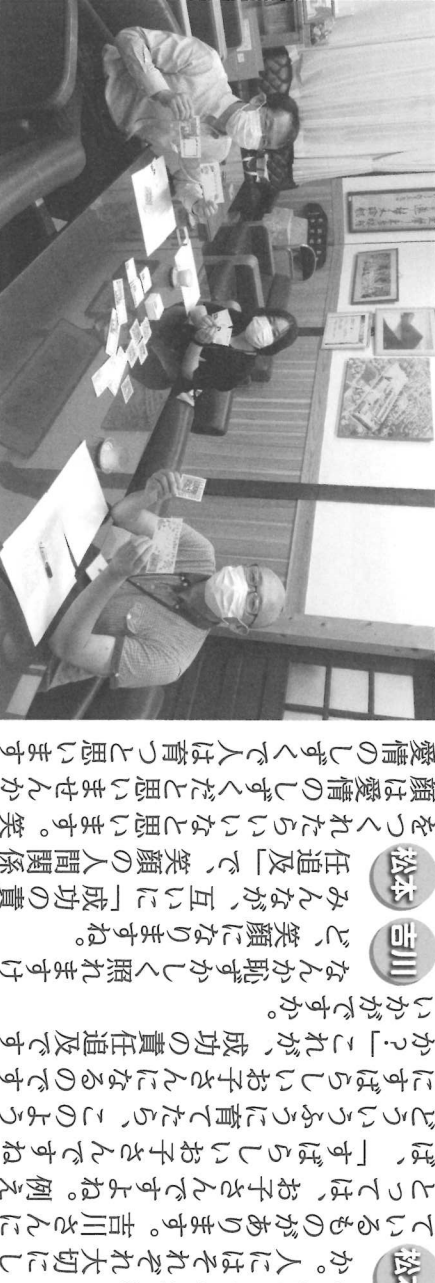 松
か。人にはそれぞれ大切にし
ているものがあります。吉川さんに
とっては、お子さんですよね。例え
ば、「すばらしいお子さんですね
どういうふうに育てたら、このよう
にすばらしいお子さんになるのです
か?」これが、成功の責任追及です
いかがですか。
吉川 なんか恥ずかしく照れますけ
ど、笑顔になりますね。
松本 みんなが、互いに「成功の責
任追及」で、笑顔の人間関係
をつくれたらいいなと思います。笑
顔は愛情のしずくだと思いませんか
愛情のしずくで人は育つと思います